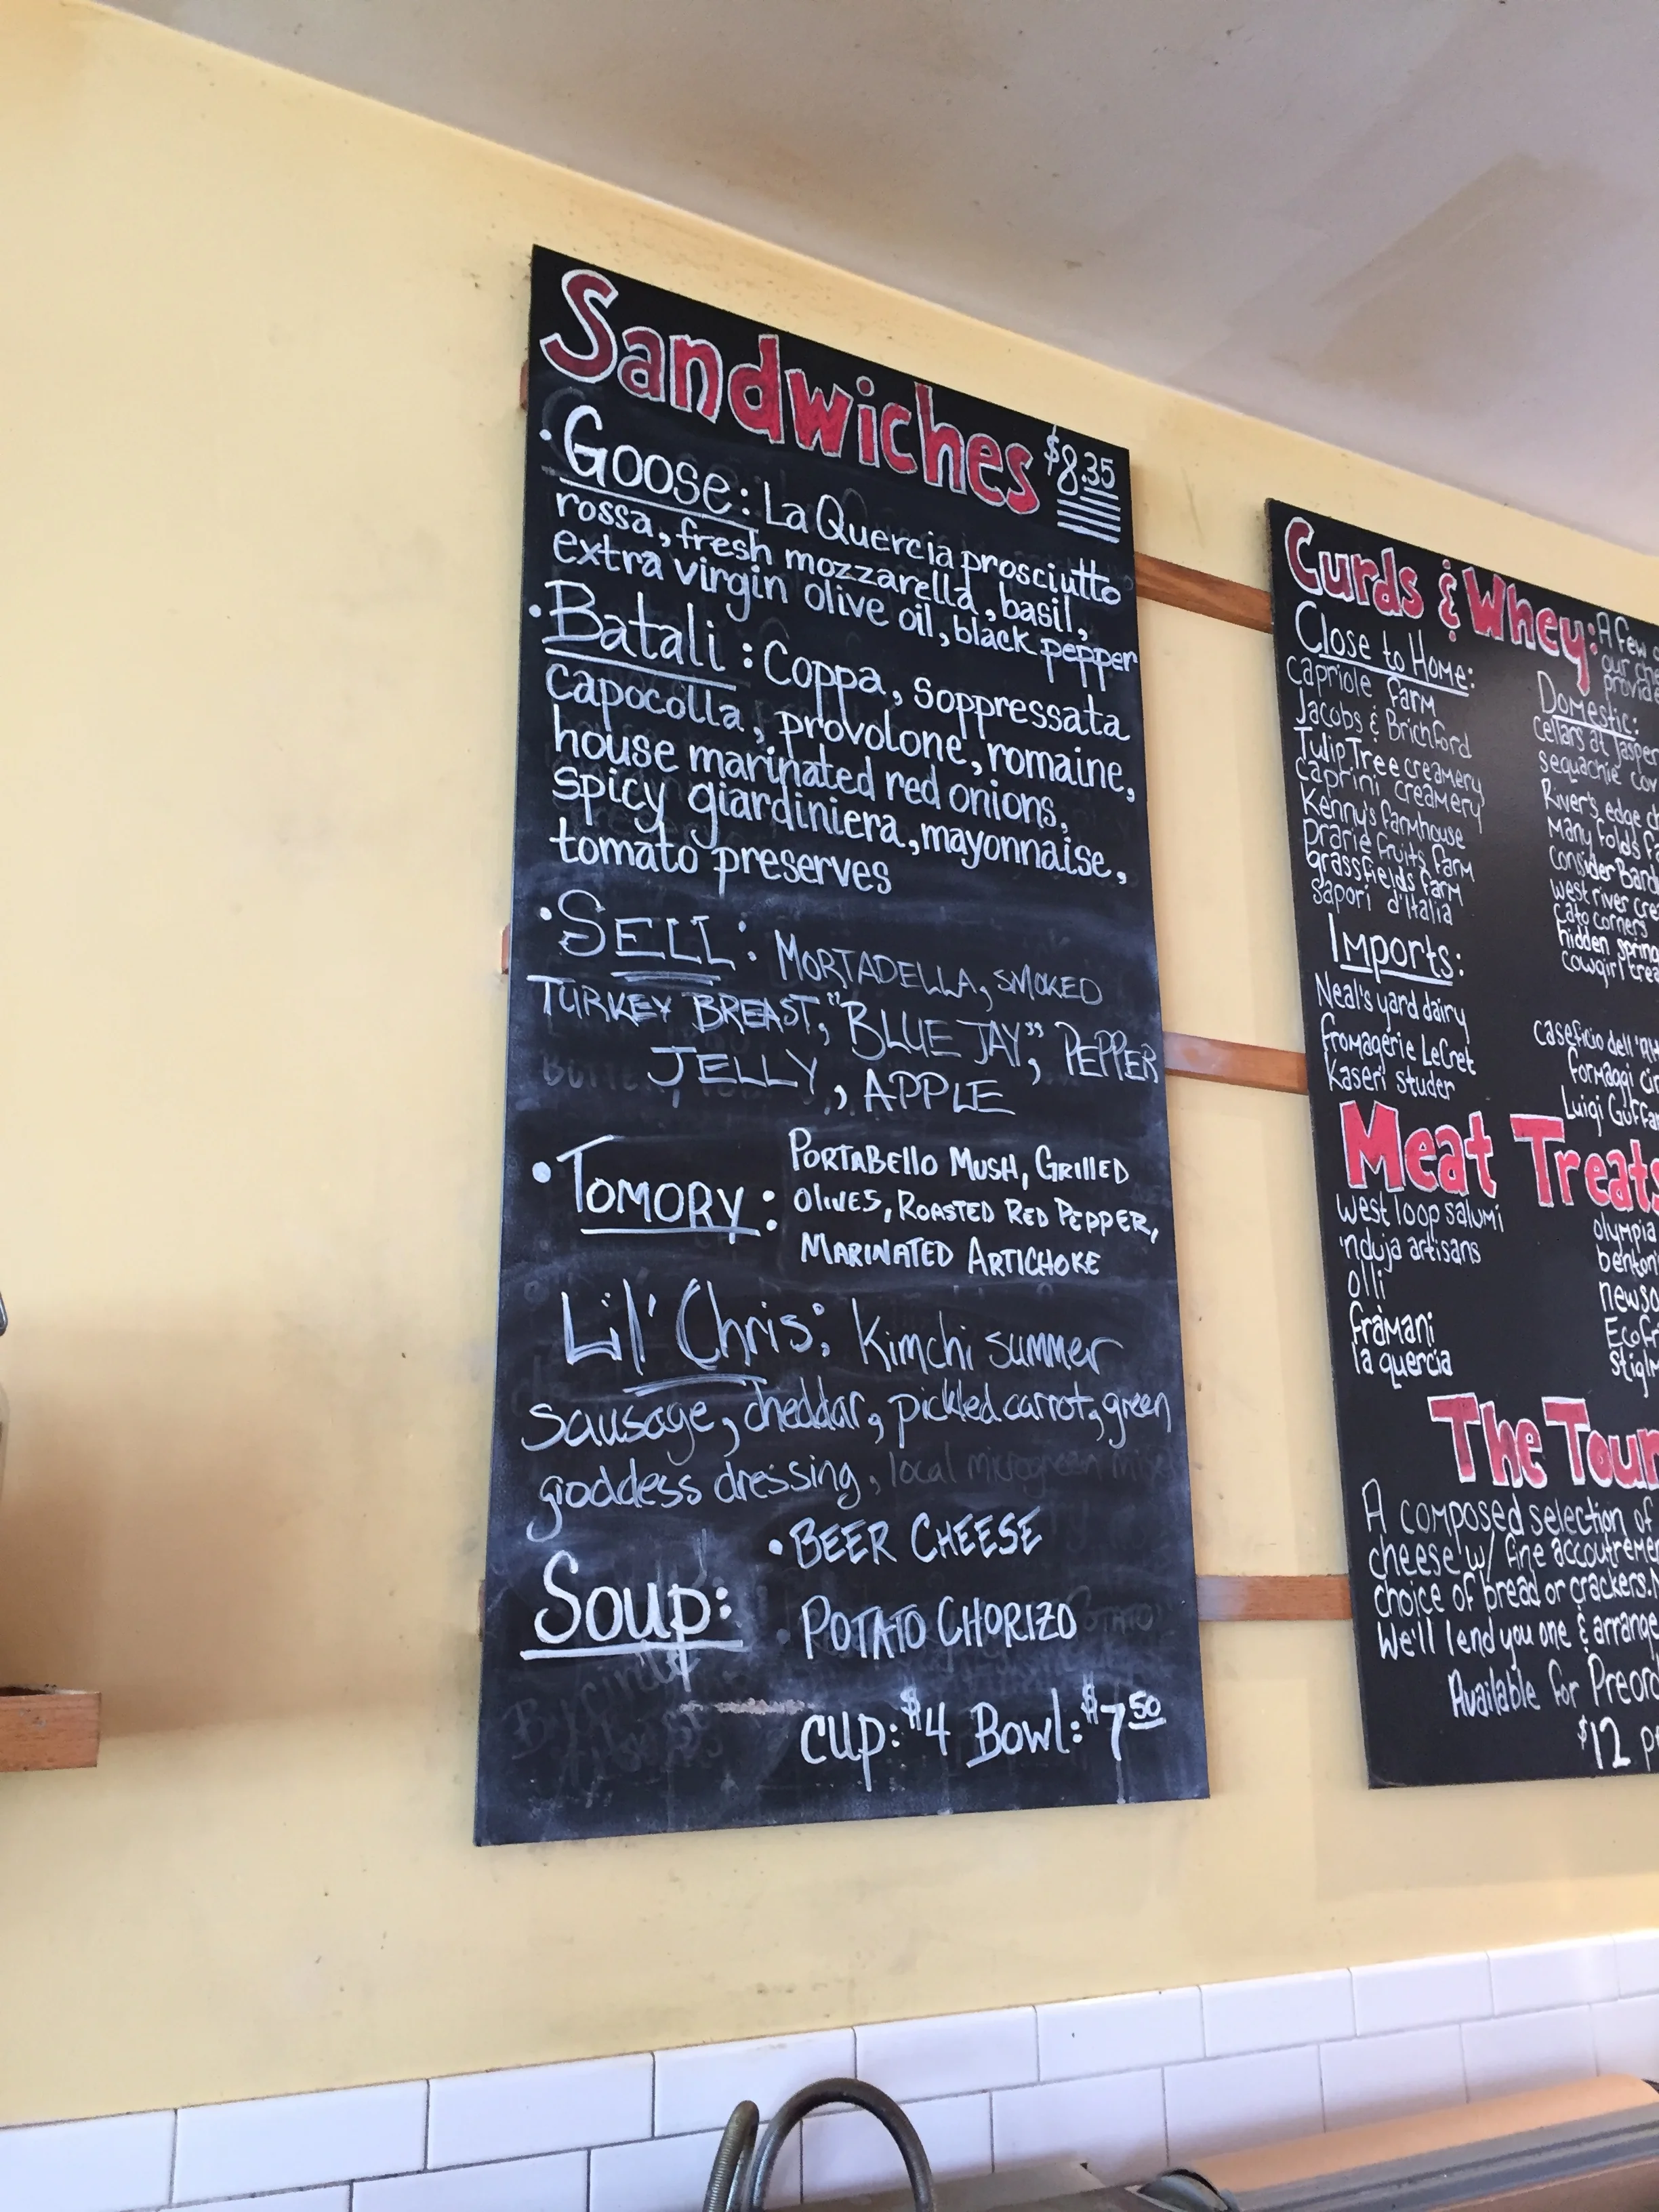 Sandwiches $8.35
• Goose: La Quercia prosciutto
rossa, fresh mozzarella, basil,
extra virgin olive oil, black pepper
• Batali: Coppa, soppressata
capocolla, provolone, romaine,
house marinated red onions,
spicy giardiniera, mayonnaise,
tomato preserves
• SELL: MORTADELLA, SMOKED
TURKEY BREAST, "BLUE JAY", PEPPER
JELLY, APPLE
• TOMORY: PORTABELLO MUSH, GRILLED
OLIVES, ROASTED RED PEPPER,
MARINATED ARTICHOKE
Lil' Chris: Kimchi summer
sausage, cheddar, pickled carrot, green
goddess dressing, local microgreen mix
Soup:
• BEER CHEESE
• POTATO CHORIZO
cup: $4 Bowl: $7.50
Curds & Whey: A few
our
Close to Home:
Capriole farm
Jacobs & Brichford
Tulip Tree creamery
Caprini creamery
Kenny's farmhouse
Prarie fruits farm
grassfields farm
Sapori d'Italia
Imports:
Neal's yard dairy
fromagerie LeCret
Kaseri studer
Domestic:
Cellars at Jasper
sequachie cov
River's edge ch
Many folds fa
Consider Bard
West river cre
Cato corners
hidden spring
cowgirl crea
caseficio dell'
formaggi
Luigi Guffa
Meat Treats
West loop salumi
'nduja artisans
olli
framani
la quercia
olympia
benton'
newso
Ecofr
stigl
The Tour
A composed selection of
cheese w/ fine accoutreme
choice of bread or crackers.
We'll lend you one & arrange
Available for Preor
$12